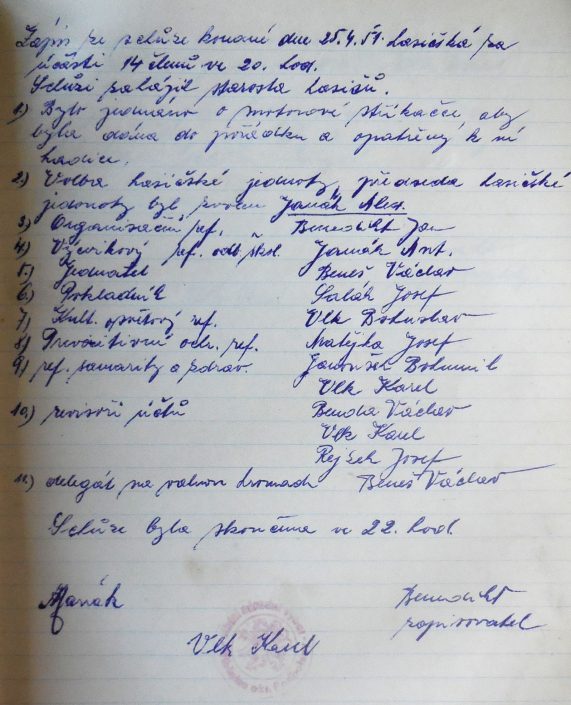 Zápis ze schůze konané dne 25.4.51. hasičská za
účasti 14 členů ve 20. hod.
Schůzi zahájil starosta hasičů.
1) Bylo jednáno o motorové stříkačce, aby
byla dána do pořádku a opatřeny k ní
hadice.
2) Volba hasičské jednoty, předseda hasičské
jednoty byl zvolen Janák Alex.
3) Organisační ref. Benedikt Jan
4) Výcvikový ref. odb. škol. Janák Ant.
5) Jednatel Beneš Václav
6) Pokladník Salák Josef
7) Kult. osvětový ref. Vlk Bohuslav
8) Preventivní ochr. ref. Matějka Josef
9) ref. samarity a zdrav. Janoušek Bohumil
Vlk Karel
10.) revisoři účtů Benda Václav
Vlk Karel
Rejšek Josef
11.) delegát na valnou hromadu Beneš Václav
Schůze byla skončena ve 22. hod.
AJanák Benedikt
zapisovatel
Vlk Karel